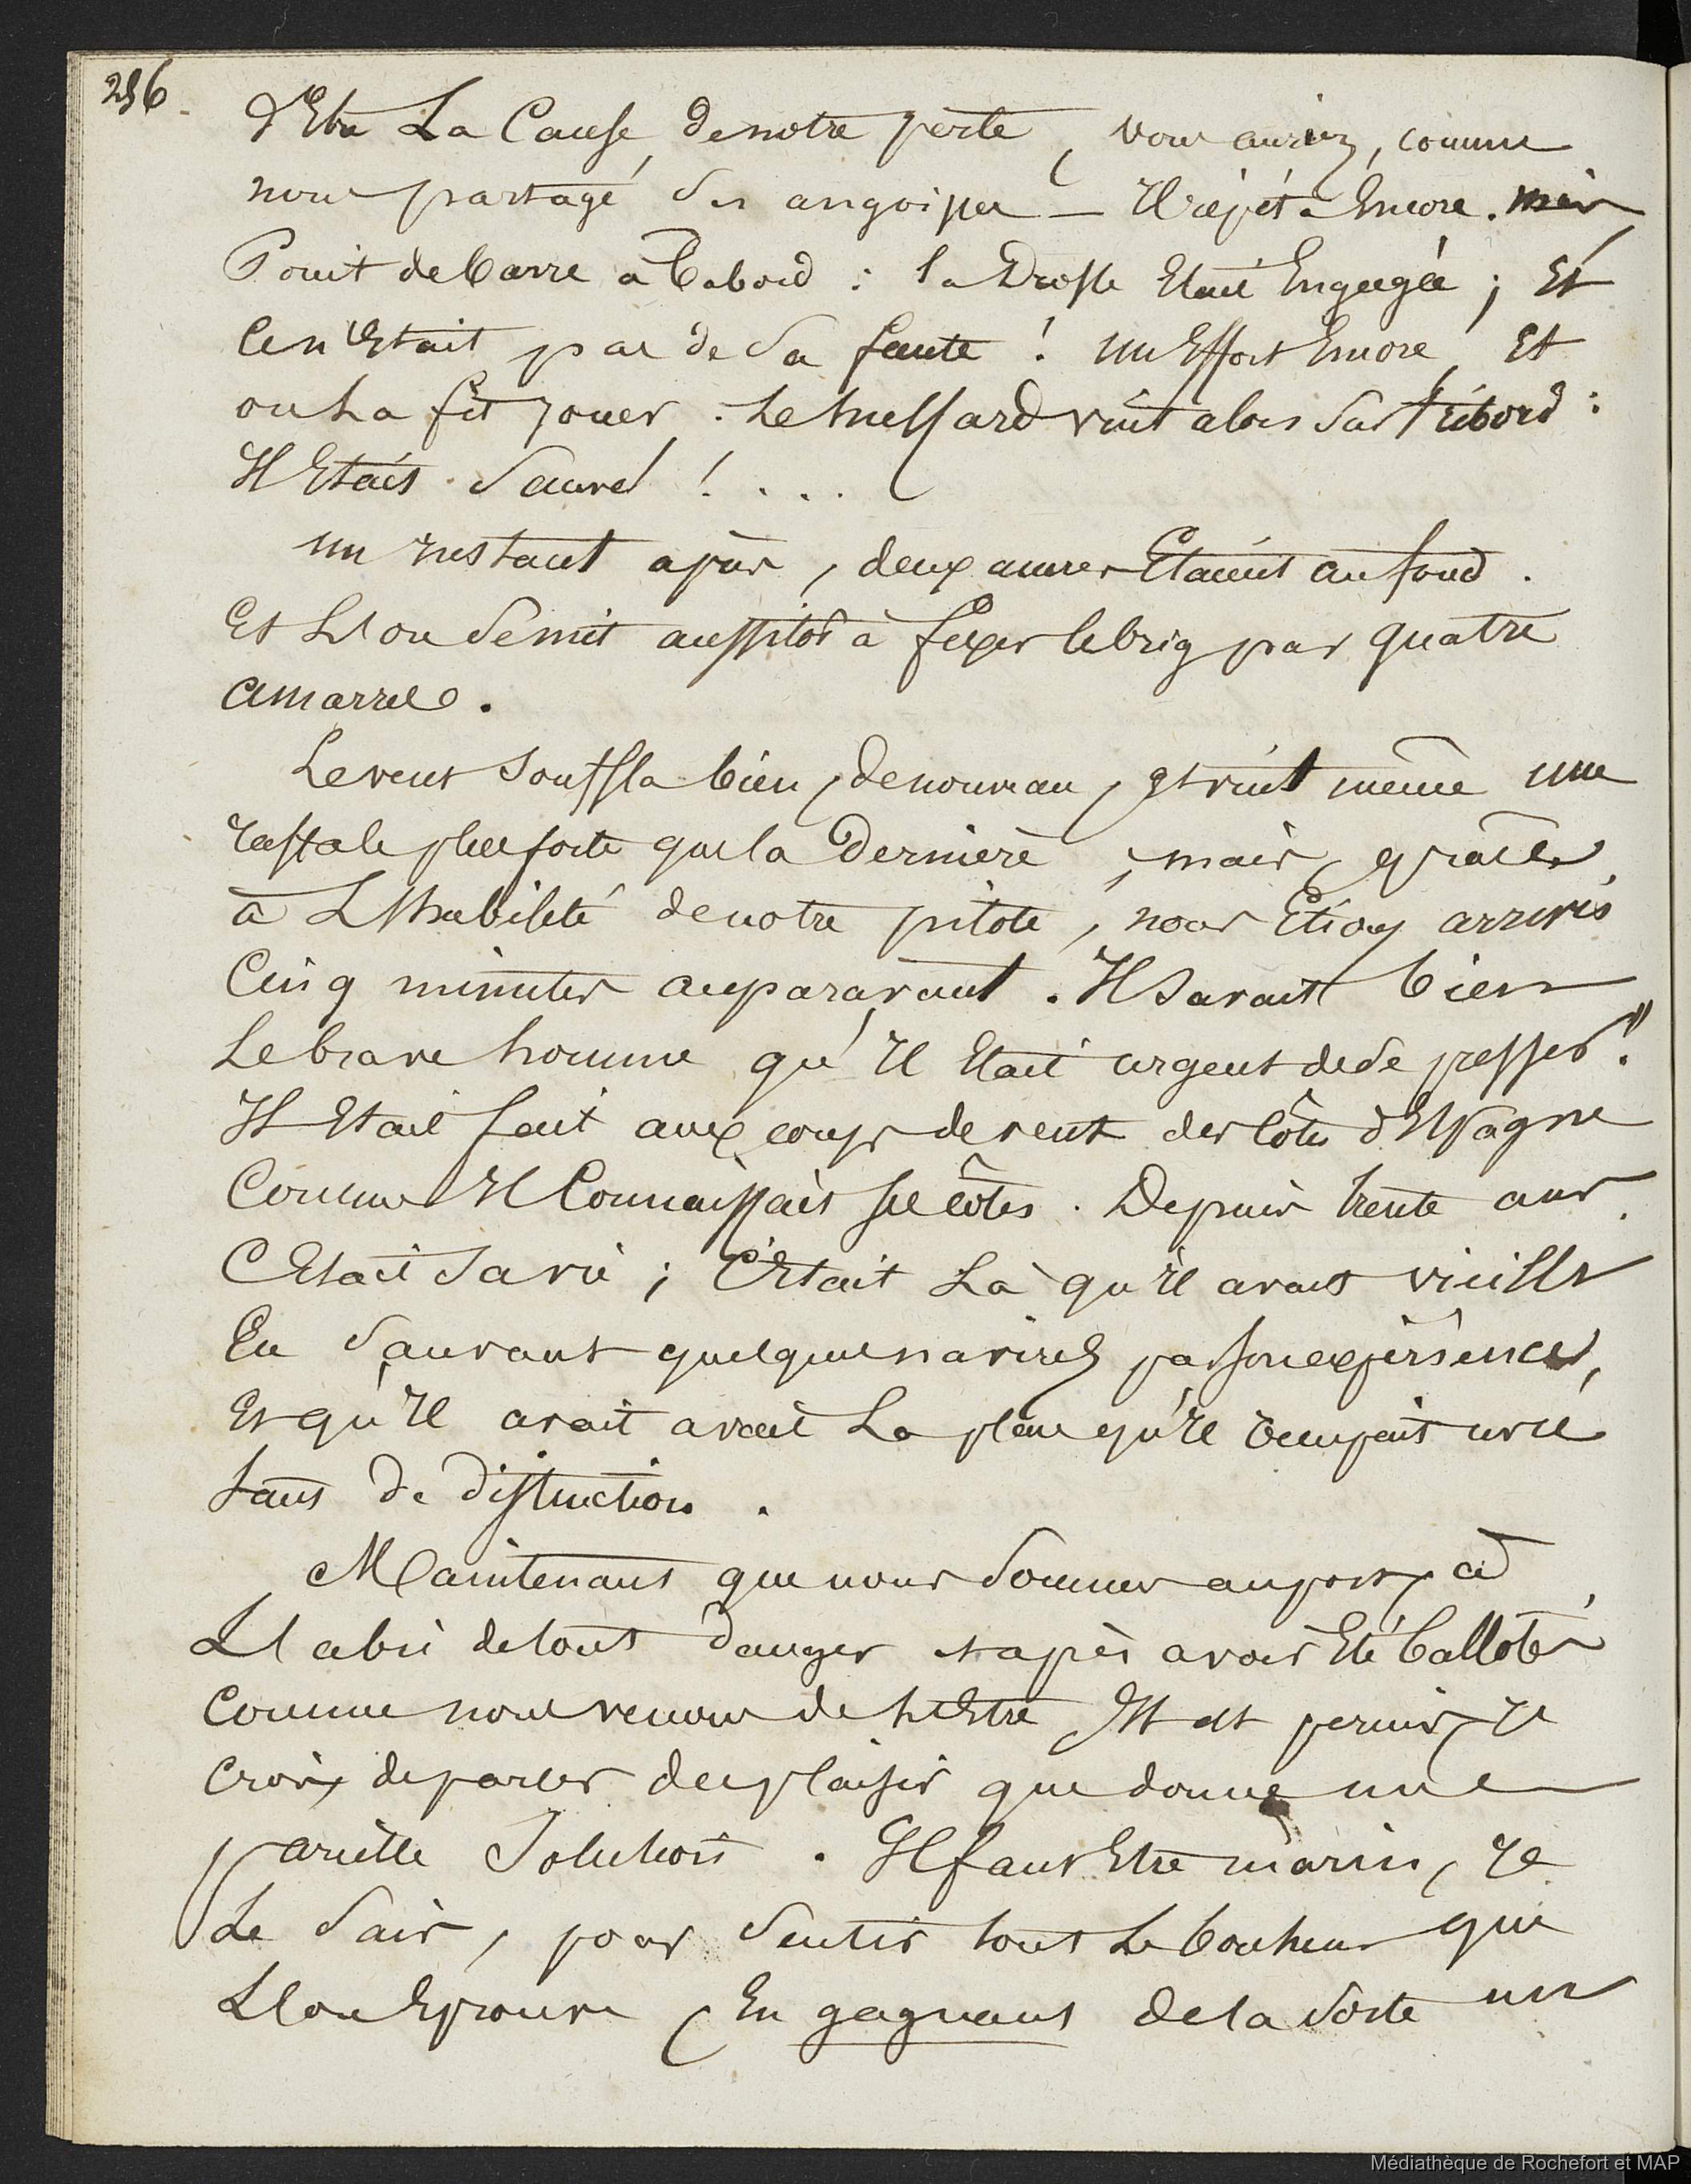 256.
d'Etre La Cause, de notre perte, vous auriez, comme
nous partagé ses angoisses — Il répéta Encore.
Point de barre à babord : la Drosse Etait Engagée ; Et
Ce n'Etait pas de Sa faute ! un Effort Encore, Et
on La fit jouer. Le hussard vint alors Sur Tribord :
Il Etait Sauvé ! ....
un instant après, deux ancres Etaient au fond.
Et L'on Se mit aussitôt à fixer le brig par quatre
amarres.
Le vent Souffla bien, de nouveau, et vint même une
raffale plus forte que la Dernière ; mais, grâces,
à L'habileté de notre pilote, nous Etions arrivés
Cinq minutes auparavant. Il Savait bien
Le brave homme qu'Il Etait urgent de Se presser !!
Il Etait fait aux coups de vent des côtes d'Espagne
Comme Il Connaissait Ses côtes. Depuis trente ans
C'Etait Sa vie ; C'Etait Là qu'Il avait vieilli
En Sauvant quelques navires par Son expérience,
Et qu'Il avait La place qu'Il occupait avec
tant de distinction.
Maintenant que nous Sommes au port, à
L'abri de tout danger et après avoir Eté ballotés
Comme nous venons de L'Etre Il est permis, Je
Crois, de parler du plaisir que donne une
pareille Solution. Il faut Etre marin, Je
Le Sais, pour Sentir tout Le bonheur que
L'on Eprouve, En gagnant de la Sorte un
Médiathèque de Rochefort et MAP